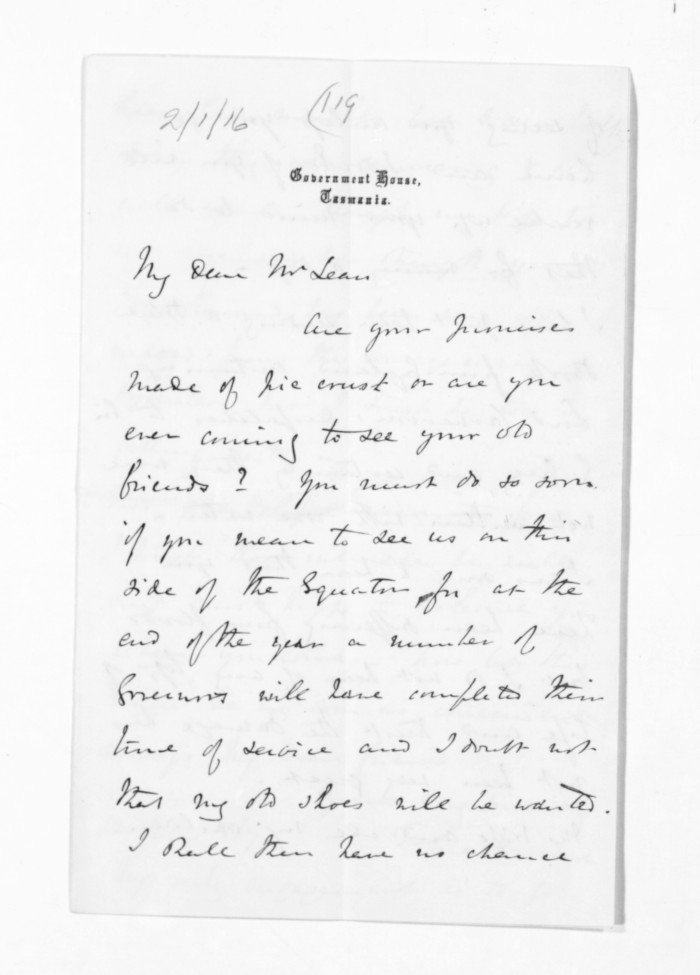 2/1/16 (119
Government House,
Tasmania.
My dear McLean
Are your promises
made of pie crust or are you
ever coming to see your old
friends? You must do so soon
if you mean to see us on this
side of the Equator for at the
end of the year a number of
Governors will have completed their
time of service and I doubt not
that my old shoes will be wanted.
I shall then have no chance